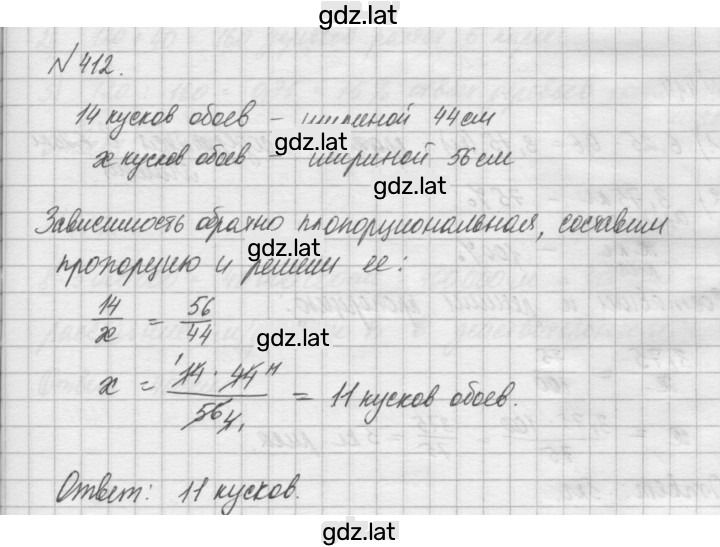 gdz.lat
№ 412.
14 кусков обоев – шириной 44 см
gdz.lat
x кусков обоев – шириной 56 см
gdz.lat
Зависимость обратно пропорциональная, составим
gdz.lat
пропорцию и решим ее:
14/x = 56/44
gdz.lat
x = 14 · 44 / 56 = 11 кусков обоев.
gdz.lat
Ответ: 11 кусков.
gdz.lat